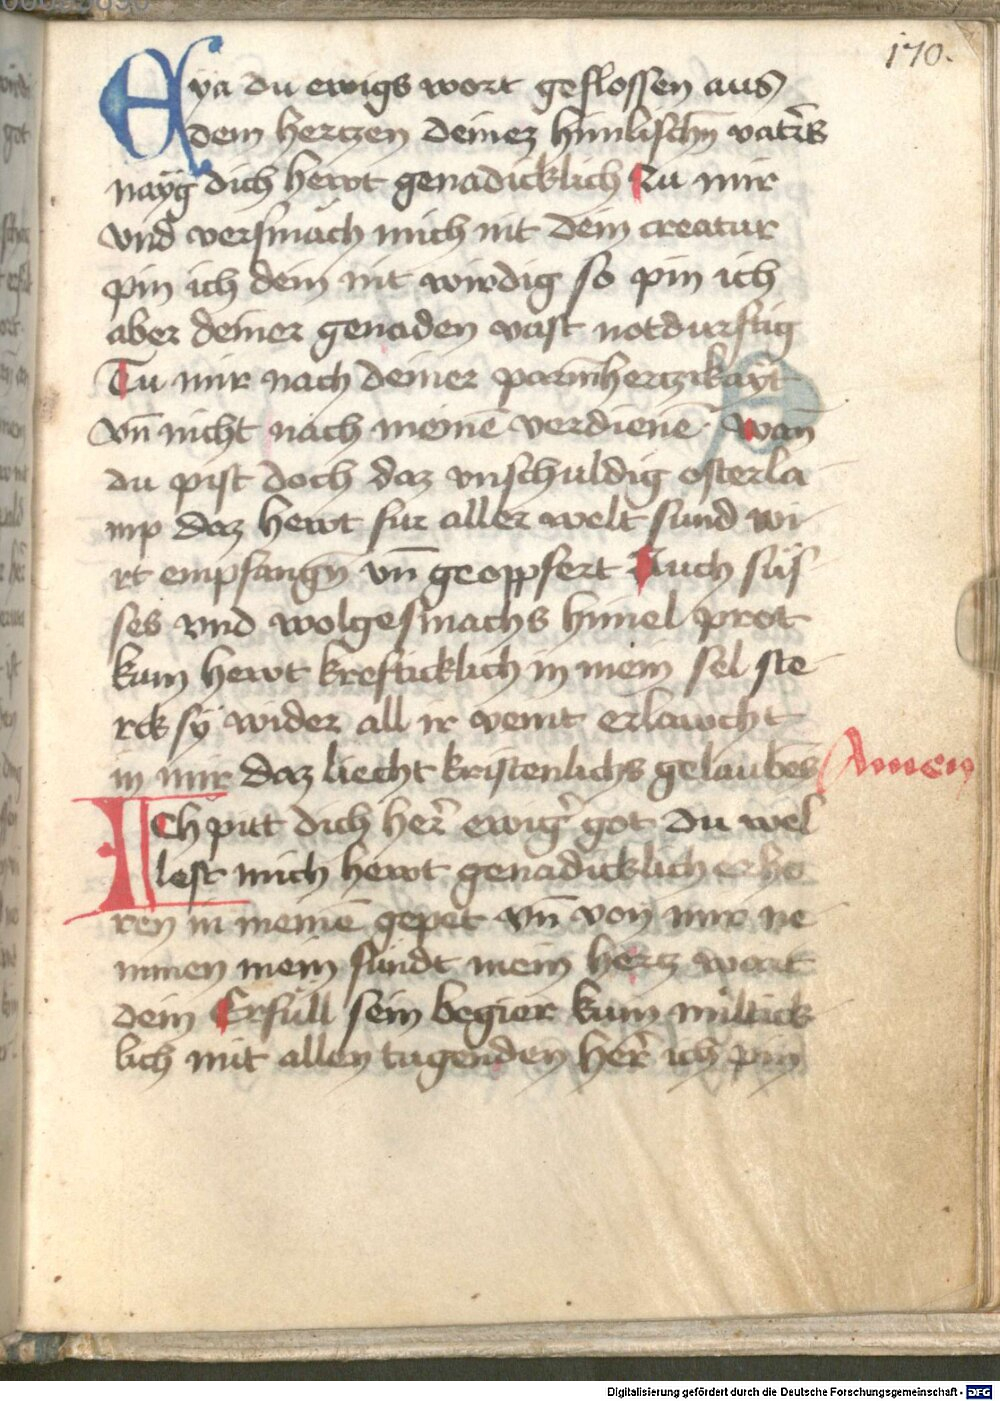 170.
Eya du ewigs wort geflossen aus
dem hertzen deinez himlischn̄ vat̄rs
nayg dich hewt genadicklich Zu mir
vnd versmäch mich nit dein creatur
pin ich dein nit wirdig so pin ich
aber deiner genaden vast notdurftig
Tu mir nach deiner parmhertzikayt
vn̄ nicht nach meinē verdienē wan̄
du pist doch daz vnschuldig osterla
mp daz hewt fur aller welt sund wi
rt empfangn̄ vn̄ geoppfert Auch süs
ses vnd wolgesmachs himel prot
kum hewt kreftticklich in mein sel ste
rck sy wider all ir veint erlawcht
in mir daz liecht kristenlichs gelaubens Amen
Ich pitt dich her̄ ewiger got du wel
lest mich hewt genadicklich erho
ren in meinē gepet vn̄ von mir ne
mmen mein sündt mein hertz wart
dein Erfüll sein begier kum miltick
lich mit allen tugenden her̄ ich pin
Digitalisierung gefördert durch die Deutsche Forschungsgemeinschaft - DFG